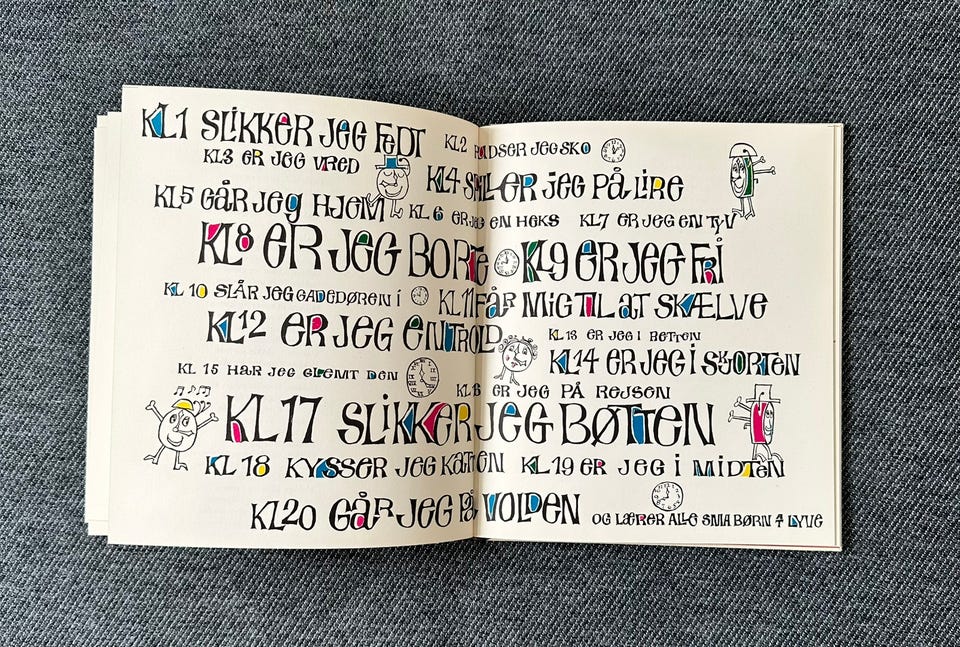 KL1 SLIKKER JEG FEDT KL2 PUDSER JEG SKO
KL3 ER JEG VRED KL4 SPILLER JEG PÅ LIRE
KL5 GÅR JEG HJEM KL 6 ER JEG EN HEKS KL7 ER JEG EN TYV
KL8 ER JEG BORTE KL9 ER JEG FRI
KL 10 SLÅR JEG GADEDØREN I KL11 FÅR MIG TIL AT SKÆLVE
KL12 ER JEG EN TROLD KL 13 ER JEG I RETTEN
KL14 ER JEG I SKJORTEN
KL 15 HAR JEG GLEMT DEN KL16 ER JEG PÅ REJSEN
KL17 SLIKKER JEG BØTTEN
KL 18 KYSSER JEG KATTEN KL19 ER JEG I MIDTEN
KL20 GÅR JEG PÅ VOLDEN OG LÆRER ALLE SMÅ BØRN AT LYVE